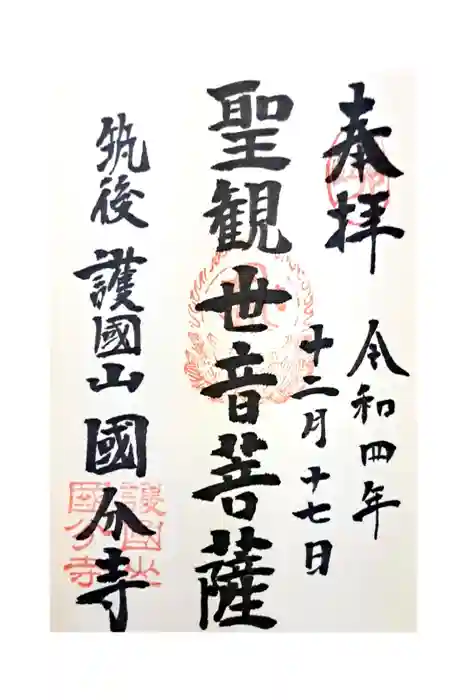 奉拝
令和四年
十二月十七日
聖観世音菩薩
筑後 護國山 國分寺
護國山
國分寺